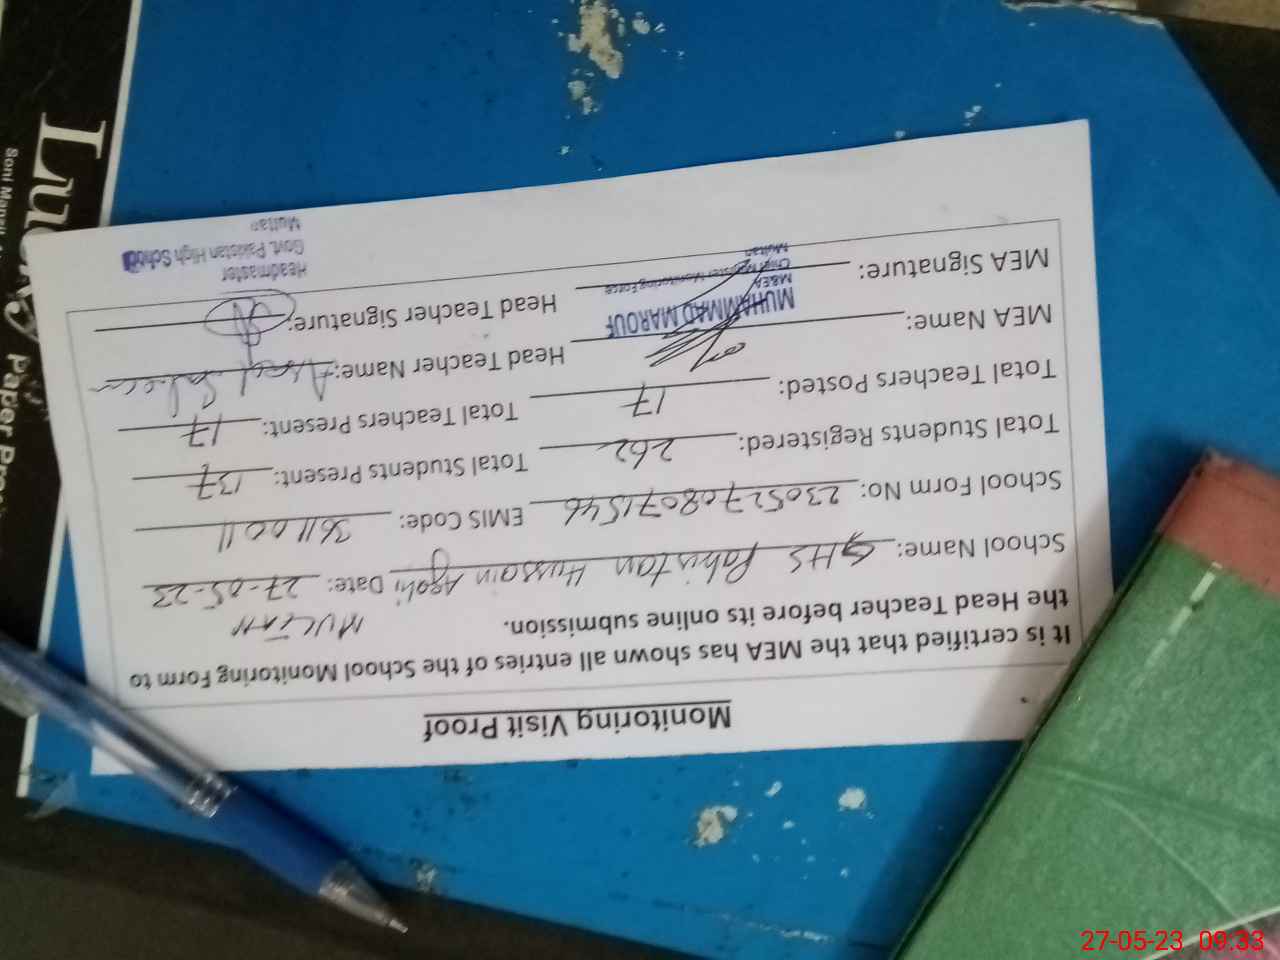 Monitoring Visit Proof
It is certified that the MEA has shown all entries of the School Monitoring Form to
the Head Teacher before its online submission. MULTAN
School Name: GHS Pakistan Hussain Agahi Date: 27-05-23
School Form No: 23052708071546 EMIS Code: 36110011
Total Students Registered: 262 Total Students Present: 137
Total Teachers Posted: 17 Total Teachers Present: 17
MEA Name: Head Teacher Name:
MUHAMMAD MAROUF
M&EA
Chief Minister Monitoring Force
Multan
MEA Signature: Head Teacher Signature:
Headmaster
Govt. Pakistan High School
Multan
Lucky
Paper
Soni
27-05-23 09:33